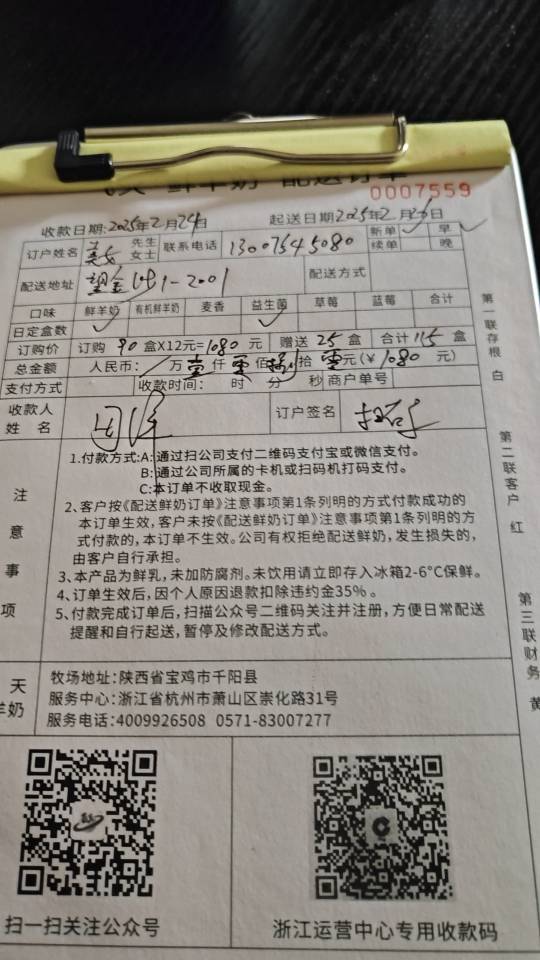 鲜羊奶 配送订单
0007559
收款日期:2025年2月24日 起送日期2025年2月26日
订户姓名 先生 女士 联系电话 13007645080 新单 ✓ 早 ✓
续单 晚
配送地址 1-2001 配送方式
口味 鲜羊奶 有机鲜羊奶 麦香 益生菌 草莓 蓝莓 合计
日定盒数
订购价 订购 90 盒X12元=1080 元 赠送 25 盒 合计 115 盒
总金额 人民币: / 万 壹 仟 零 佰 捌 拾 零 元(￥ 1080 元)
支付方式 收款时间: 时 分 秒 商户单号
收款人 姓名 订户签名
注意事项
1.付款方式:A:通过扫公司支付二维码支付宝或微信支付。
B:通过公司所属的卡机或扫码机打码支付。
C:本订单不收取现金。
2、客户按《配送鲜奶订单》注意事项第1条列明的方式付款成功的
本订单生效,客户未按《配送鲜奶订单》注意事项第1条列明的方
式付款的,本订单不生效。公司有权拒绝配送鲜奶,发生损失的,
由客户自行承担。
3、本产品为鲜乳,未加防腐剂。未饮用请立即存入冰箱2-6°C保鲜。
4、订单生效后,因个人原因退款扣除违约金35%。
5、付款完成订单后,扫描公众号二维码关注并注册,方便日常配送
提醒和自行起送,暂停及修改配送方式。
天
羊奶
牧场地址:陕西省宝鸡市千阳县
服务中心:浙江省杭州市萧山区崇化路31号
服务电话:4009926508 0571-83007277
扫一扫关注公众号
浙江运营中心专用收款码
第一联存根 白
第二联客户 红
第三联财务 黄